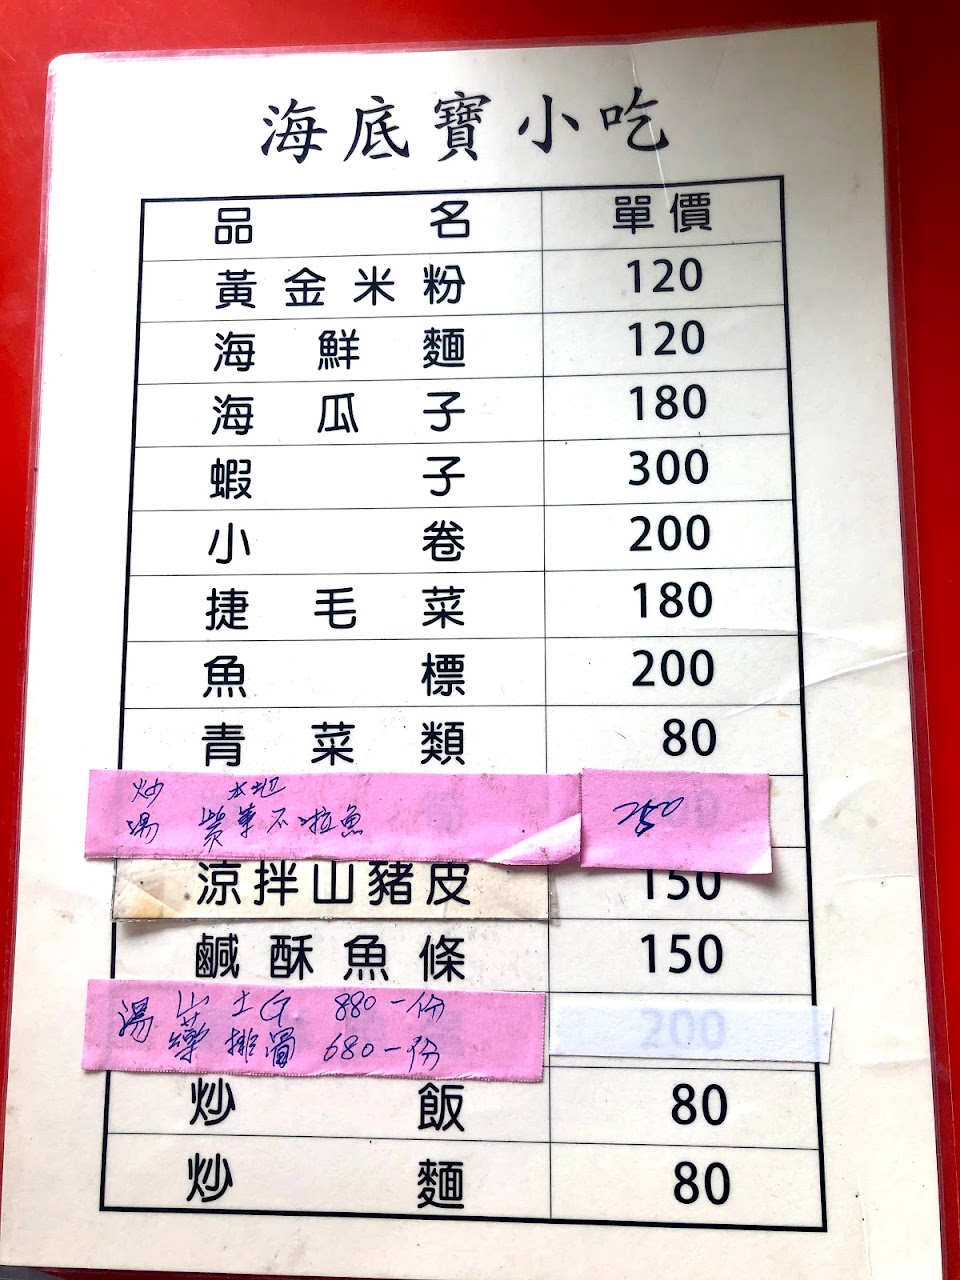 海底寶小吃
品名 單價
黃金米粉 120
海鮮麵 120
海瓜子 180
蝦子 300
小卷 200
捷毛菜 180
魚標 200
青菜類 80
炒 本地
湯 250
涼拌山豬皮 150
鹹酥魚條 150
湯 山土 880一份
藥排骨 680一份
200
炒飯 80
炒麵 80